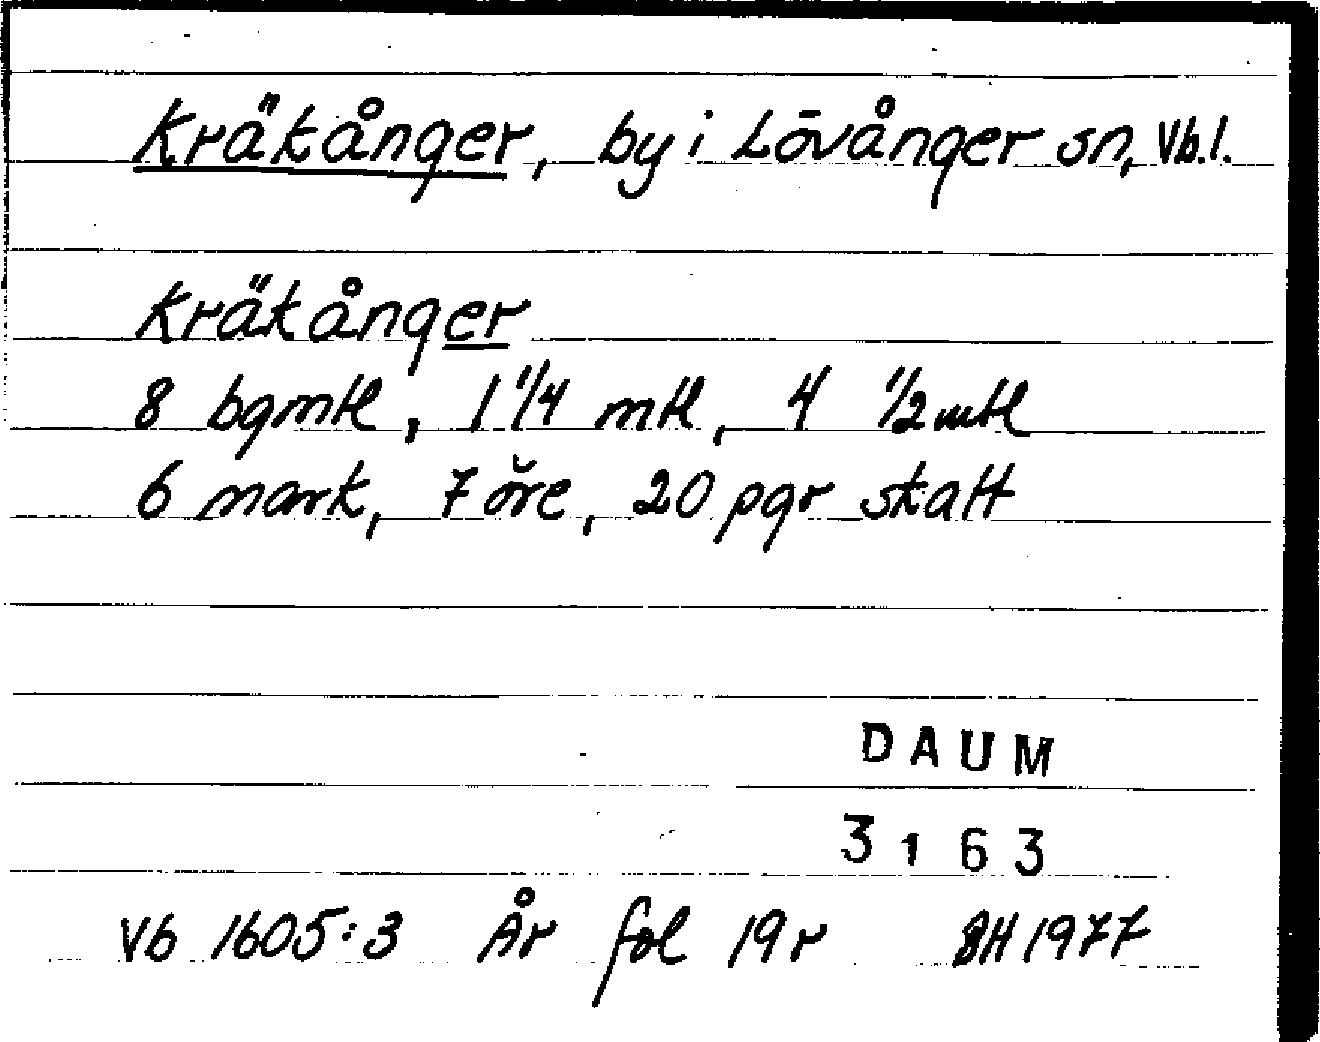 Kräkånger, by i Lövånger sn, Vb.l.
Kräkånger
8 bgmtl, 1 1/4 mtl, 4 1/2 mtl
6 mark, 7 öre, 20 pgr skatt
DAUM
3163
Vb 1605:3 År fol 19 r BH 1977